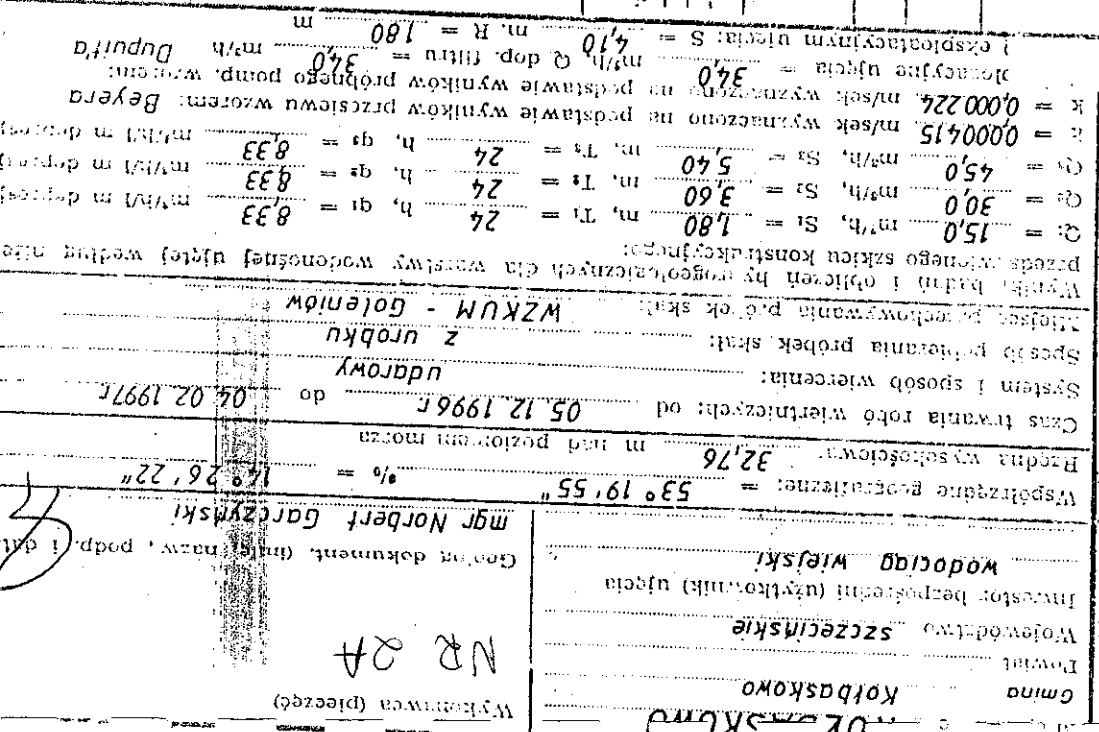 Gmina Kołbaskowo
Powiat
Województwo szczecińskie
Inwestor bezpośredni (użytkownik) ujęcia
wodociąg wiejski
Wykonawca (pieczęć)
NR 2A
Geolog dokument. (imię, nazw., podp. i data
mgr Norbert Garczyński
Współrzędne geograficzne: = 53° 19' 55" 14° 26' 22"
Rzędna wysokościowa: 32,76 m nad poziomem morza
Czas trwania robót wiertniczych: od 05. 12. 1996 r. do 04. 02. 1997 r.
System i sposób wiercenia: udarowy
Sposób pobierania próbek skał: z urobku
Miejsce przechowywania próbek skał: WZKUM - Goleniów
Wyniki badań i obliczeń hydrogeologicznych dla warstwy wodonośnej ujętej według niże
przedstawionego szkicu konstrukcyjnego:
Q₁ = 15,0 m³/h, S₁ = 1,80 m, T₁ = 24 h, q₁ = 8,33 m³/h/1 m depresj
Q₂ = 30,0 m³/h, S₂ = 3,60 m, T₂ = 24 h, q₂ = 8,33 m³/h/1 m depresj
Q₃ = 45,0 m³/h, S₃ = 5,40 m, T₃ = 24 h, q₃ = 8,33 m³/h/1 m depresj
k = 0,000415 m/sek wyznaczono na podstawie wyników przesiewu wzorem: Beyera
k = 0,000224 m/sek wyznaczono na podstawie wyników próbnego pomp. wzorem: Dupuit'a
ploatacyjne ujęcia = 34,0 m³/h, Q dop. filtru = 34,0 m³/h
eksploatacyjnym ujęcia: S = 4,10 m, R = 180 m